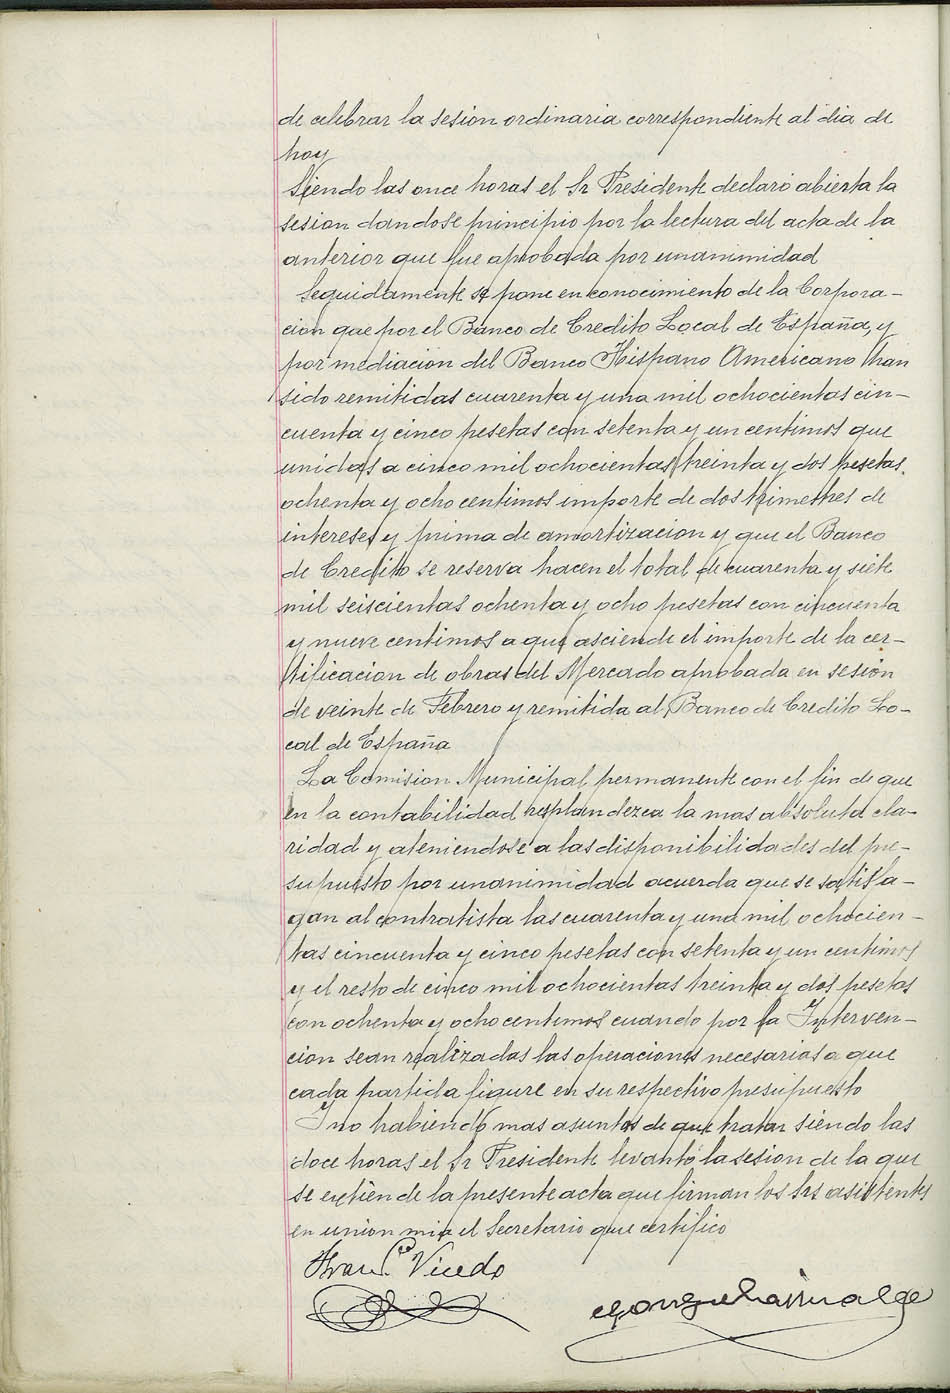 de celebrar la sesion ordinaria correspondiente al dia de
hoy
Siendo las once horas el Sr Presidente declaró abierta la
sesion dandose principio por la lectura del acta de la
anterior que fue aprobada por unanimidad
Seguidamente se pone en conocimiento de la Corpora-
cion que por el Banco de Credito Local de España, y
por mediacion del Banco Hispano Americano han
sido remitidas cuarenta y una mil ochocientas cin-
cuenta y cinco pesetas con setenta y un centimos que
unidas a cinco mil ochocientas treinta y dos pesetas
ochenta y ocho centimos importe de dos trimestres de
intereses y prima de amortizacion y que el Banco
de Credito se reserva hacen el total de cuarenta y siete
mil seiscientas ochenta y ocho pesetas con cincuenta
y nueve centimos a que asciende el importe de la cer-
tificacion de obras del Mercado aprobada en sesion
de veinte de Febrero y remitida al Banco de Credito Lo-
cal de España
La Comision Municipal permanente con el fin de que
en la contabilidad resplandezca la mas absoluta cla-
ridad y ateniendose a las disponibilidades del pre-
supuesto por unanimidad acuerda que se satisfa-
gan al contratista las cuarenta y una mil ochocien-
tas cincuenta y cinco pesetas con setenta y un centimos
y el resto de cinco mil ochocientas treinta y dos pesetas
con ochenta y ocho centimos cuando por la Interven-
cion sean realizadas las operaciones necesarias a que
cada partida figure en su respectivo presupuesto
Y no habiendo mas asuntos de que tratar siendo las
doce horas el Sr Presidente levantó la sesion de la que
se extiende la presente acta que firman los Srs asistentes
en union mia el Secretario que certifico
Franco Vicedo